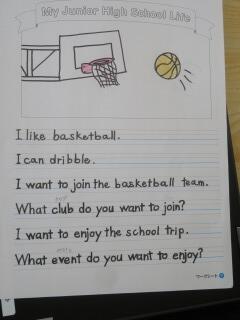 My Junior High School Life
I like basketball.
I can dribble.
I want to join the basketball team.
What club do you want to join?
I want to enjoy the school trip.
What event do you want to enjoy?
ワークシート